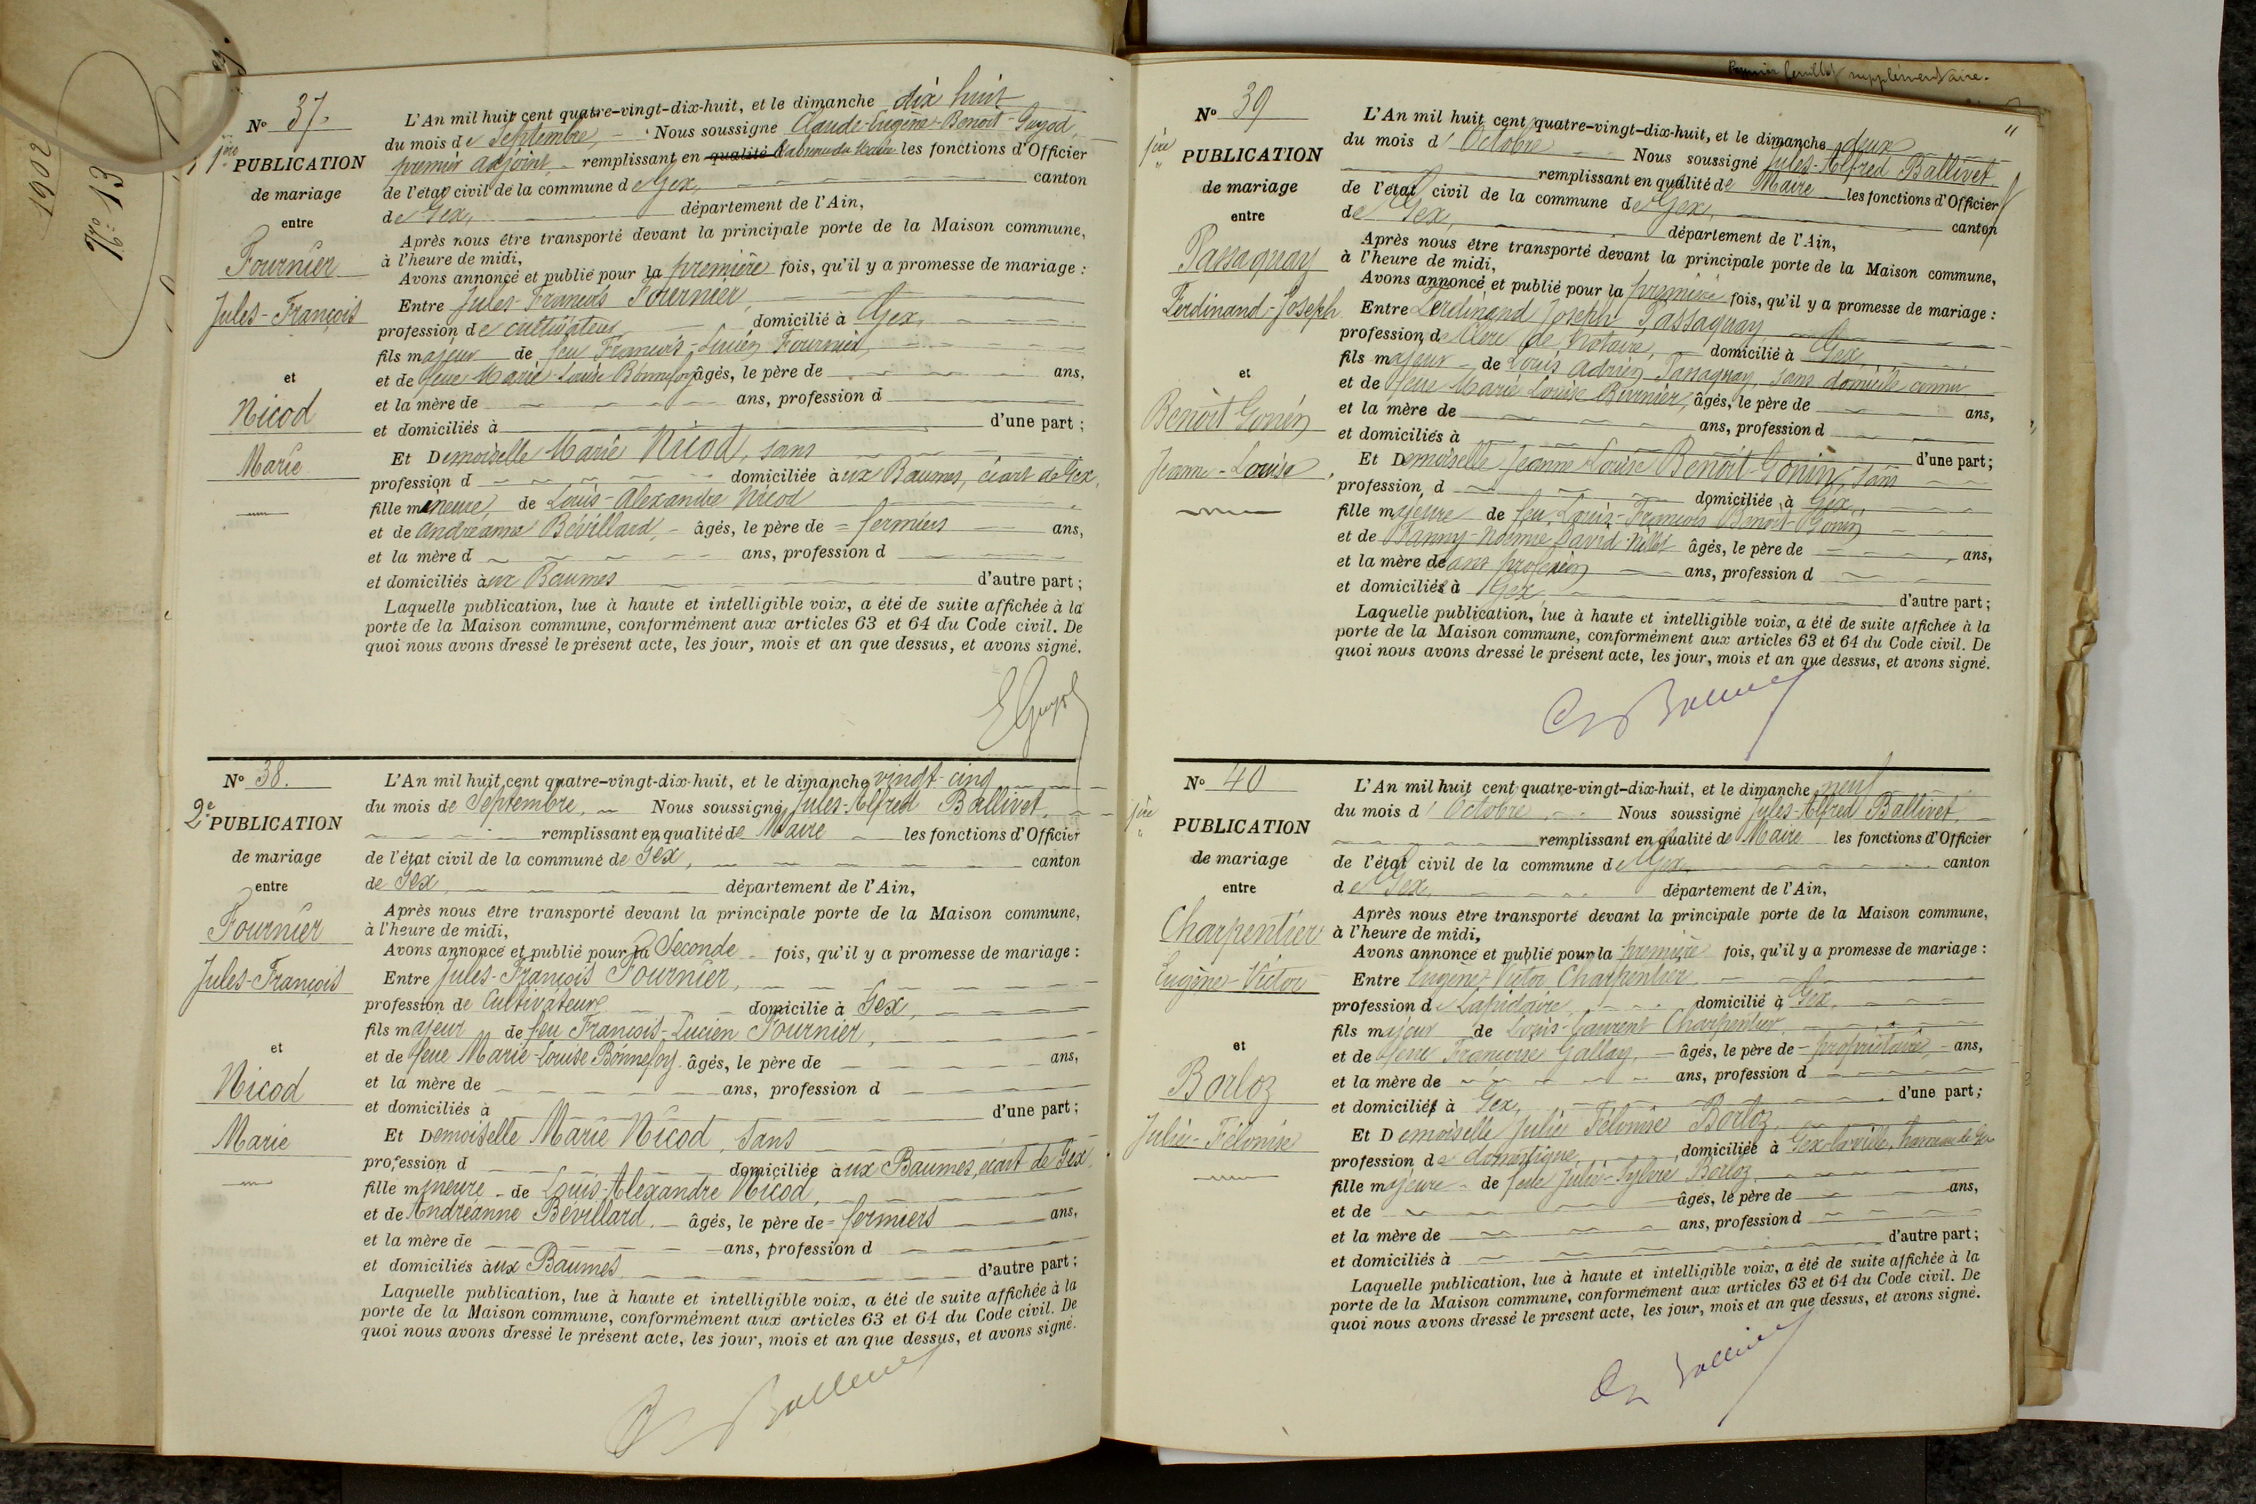 1902
N° 13
N° 37.
1ère
PUBLICATION
de mariage
entre
Fournier
Jules-François
et
Nicod
Marie
L'An mil huit cent quatre-vingt-dix-huit, et le dimanche dix huit
du mois de Septembre, Nous soussigné Claude-Eugène-Benoit-Guyod
premier adjoint, remplissant en qualité d'absence du Maire les fonctions d'Officier
de l'état civil de la commune de Gex, canton
de Gex, département de l'Ain,
Après nous être transporté devant la principale porte de la Maison commune,
à l'heure de midi,
Avons annoncé et publié pour la première fois, qu'il y a promesse de mariage :
Entre Jules-François Fournier,
profession de cultivateur domicilié à Gex,
fils majeur de feu François-Lucien Fournier,
et de feue Marie Louise Bonnefoy, âgés, le père de ans,
et la mère de ans, profession d
et domiciliés à d'une part ;
Et Demoiselle Marie Nicod, sans
profession d domiciliée aux Baumes, écart de Gex,
fille mineure, de Louis-Alexandre Nicod
et de Andréanne Bévillard, âgés, le père de = fermiers ans,
et la mère d ans, profession d
et domiciliés aux Baumes d'autre part ;
Laquelle publication, lue à haute et intelligible voix, a été de suite affichée à la
porte de la Maison commune, conformément aux articles 63 et 64 du Code civil. De
quoi nous avons dressé le présent acte, les jour, mois et an que dessus, et avons signé.
E Guyod
N° 38.
2e
PUBLICATION
de mariage
entre
Fournier
Jules-François
et
Nicod
Marie
L'An mil huit cent quatre-vingt-dix-huit, et le dimanche vingt-cinq
du mois de Septembre, Nous soussigné Jules-Alfred Ballivet,
remplissant en qualité de Maire les fonctions d'Officier
de l'état civil de la commune de Gex, canton
de Gex, département de l'Ain,
Après nous être transporté devant la principale porte de la Maison commune,
à l'heure de midi,
Avons annoncé et publié pour la Seconde fois, qu'il y a promesse de mariage :
Entre Jules-François Fournier,
profession de Cultivateur domicilié à Gex,
fils majeur de feu François-Lucien Fournier,
et de feue Marie-Louise Bonnefoy âgés, le père de ans,
et la mère de ans, profession d
et domiciliés à d'une part ;
Et Demoiselle Marie Nicod, sans
profession d domiciliée aux Baumes, écart de Gex,
fille mineure de Louis-Alexandre Nicod,
et de Andréanne Bévillard, âgés, le père de = fermiers ans,
et la mère de ans, profession d
et domiciliés aux Baumes d'autre part ;
Laquelle publication, lue à haute et intelligible voix, a été de suite affichée à la
porte de la Maison commune, conformément aux articles 63 et 64 du Code civil. De
quoi nous avons dressé le présent acte, les jour, mois et an que dessus, et avons signé.
Ballivet
feuillet supplémentaire.
N° 39
1ère
PUBLICATION
de mariage
entre
Passaquay
Ferdinand-Joseph
et
Benoit Gonin
Jeanne-Louise
L'An mil huit cent quatre-vingt-dix-huit, et le dimanche deux
du mois d'Octobre Nous soussigné Jules-Alfred Ballivet,
remplissant en qualité de Maire les fonctions d'Officier
de l'état civil de la commune de Gex, canton
de Gex, département de l'Ain,
Après nous être transporté devant la principale porte de la Maison commune,
à l'heure de midi,
Avons annoncé et publié pour la première fois, qu'il y a promesse de mariage :
Entre Ferdinand Joseph Passaquay
profession de Clerc de Notaire, domicilié à Gex,
fils majeur de Louis Adrien Passaquay, sans domicile connu
et de feue Marie Louise âgés, le père de ans,
et la mère de ans, profession d
et domiciliés à d'une part ;
Et Demoiselle Jeanne Louise Benoit-Gonin, sans
profession d domiciliée à Gex,
fille majeure de feu Louis-François Benoit-Gonin
et de Fanny-Noémie David âgés, le père de ans,
et la mère de sans profession ans, profession d
et domiciliés à Gex, d'autre part ;
Laquelle publication, lue à haute et intelligible voix, a été de suite affichée à la
porte de la Maison commune, conformément aux articles 63 et 64 du Code civil. De
quoi nous avons dressé le présent acte, les jour, mois et an que dessus, et avons signé.
Ballivet
N° 40
1ère
PUBLICATION
de mariage
entre
Charpentier
Eugène-Victor
et
Borloz
Julie-Félonise
L'An mil huit cent quatre-vingt-dix-huit, et le dimanche neuf
du mois d'Octobre Nous soussigné Jules-Alfred Ballivet,
remplissant en qualité de Maire les fonctions d'Officier
de l'état civil de la commune de Gex, canton
de Gex, département de l'Ain,
Après nous être transporté devant la principale porte de la Maison commune,
à l'heure de midi,
Avons annoncé et publié pour la première fois, qu'il y a promesse de mariage :
Entre Eugène Victor Charpentier
profession de Lapidaire, domicilié à Gex,
fils majeur de Louis-Laurent Charpentier
et de feue Françoise Gallay, âgés, le père de - propriétaire, - ans,
et la mère de ans, profession d
et domiciliés à Gex, d'une part ;
Et Demoiselle Julie Félonise Borloz,
profession de domestique, domiciliée à Gex-la-ville, hameau de Gex
fille majeure de feue Julie-Sylvie Borloz
et de âgés, le père de ans,
et la mère de ans, profession d
et domiciliés à d'autre part ;
Laquelle publication, lue à haute et intelligible voix, a été de suite affichée à la
porte de la Maison commune, conformément aux articles 63 et 64 du Code civil. De
quoi nous avons dressé le présent acte, les jour, mois et an que dessus, et avons signé.
Ballivet